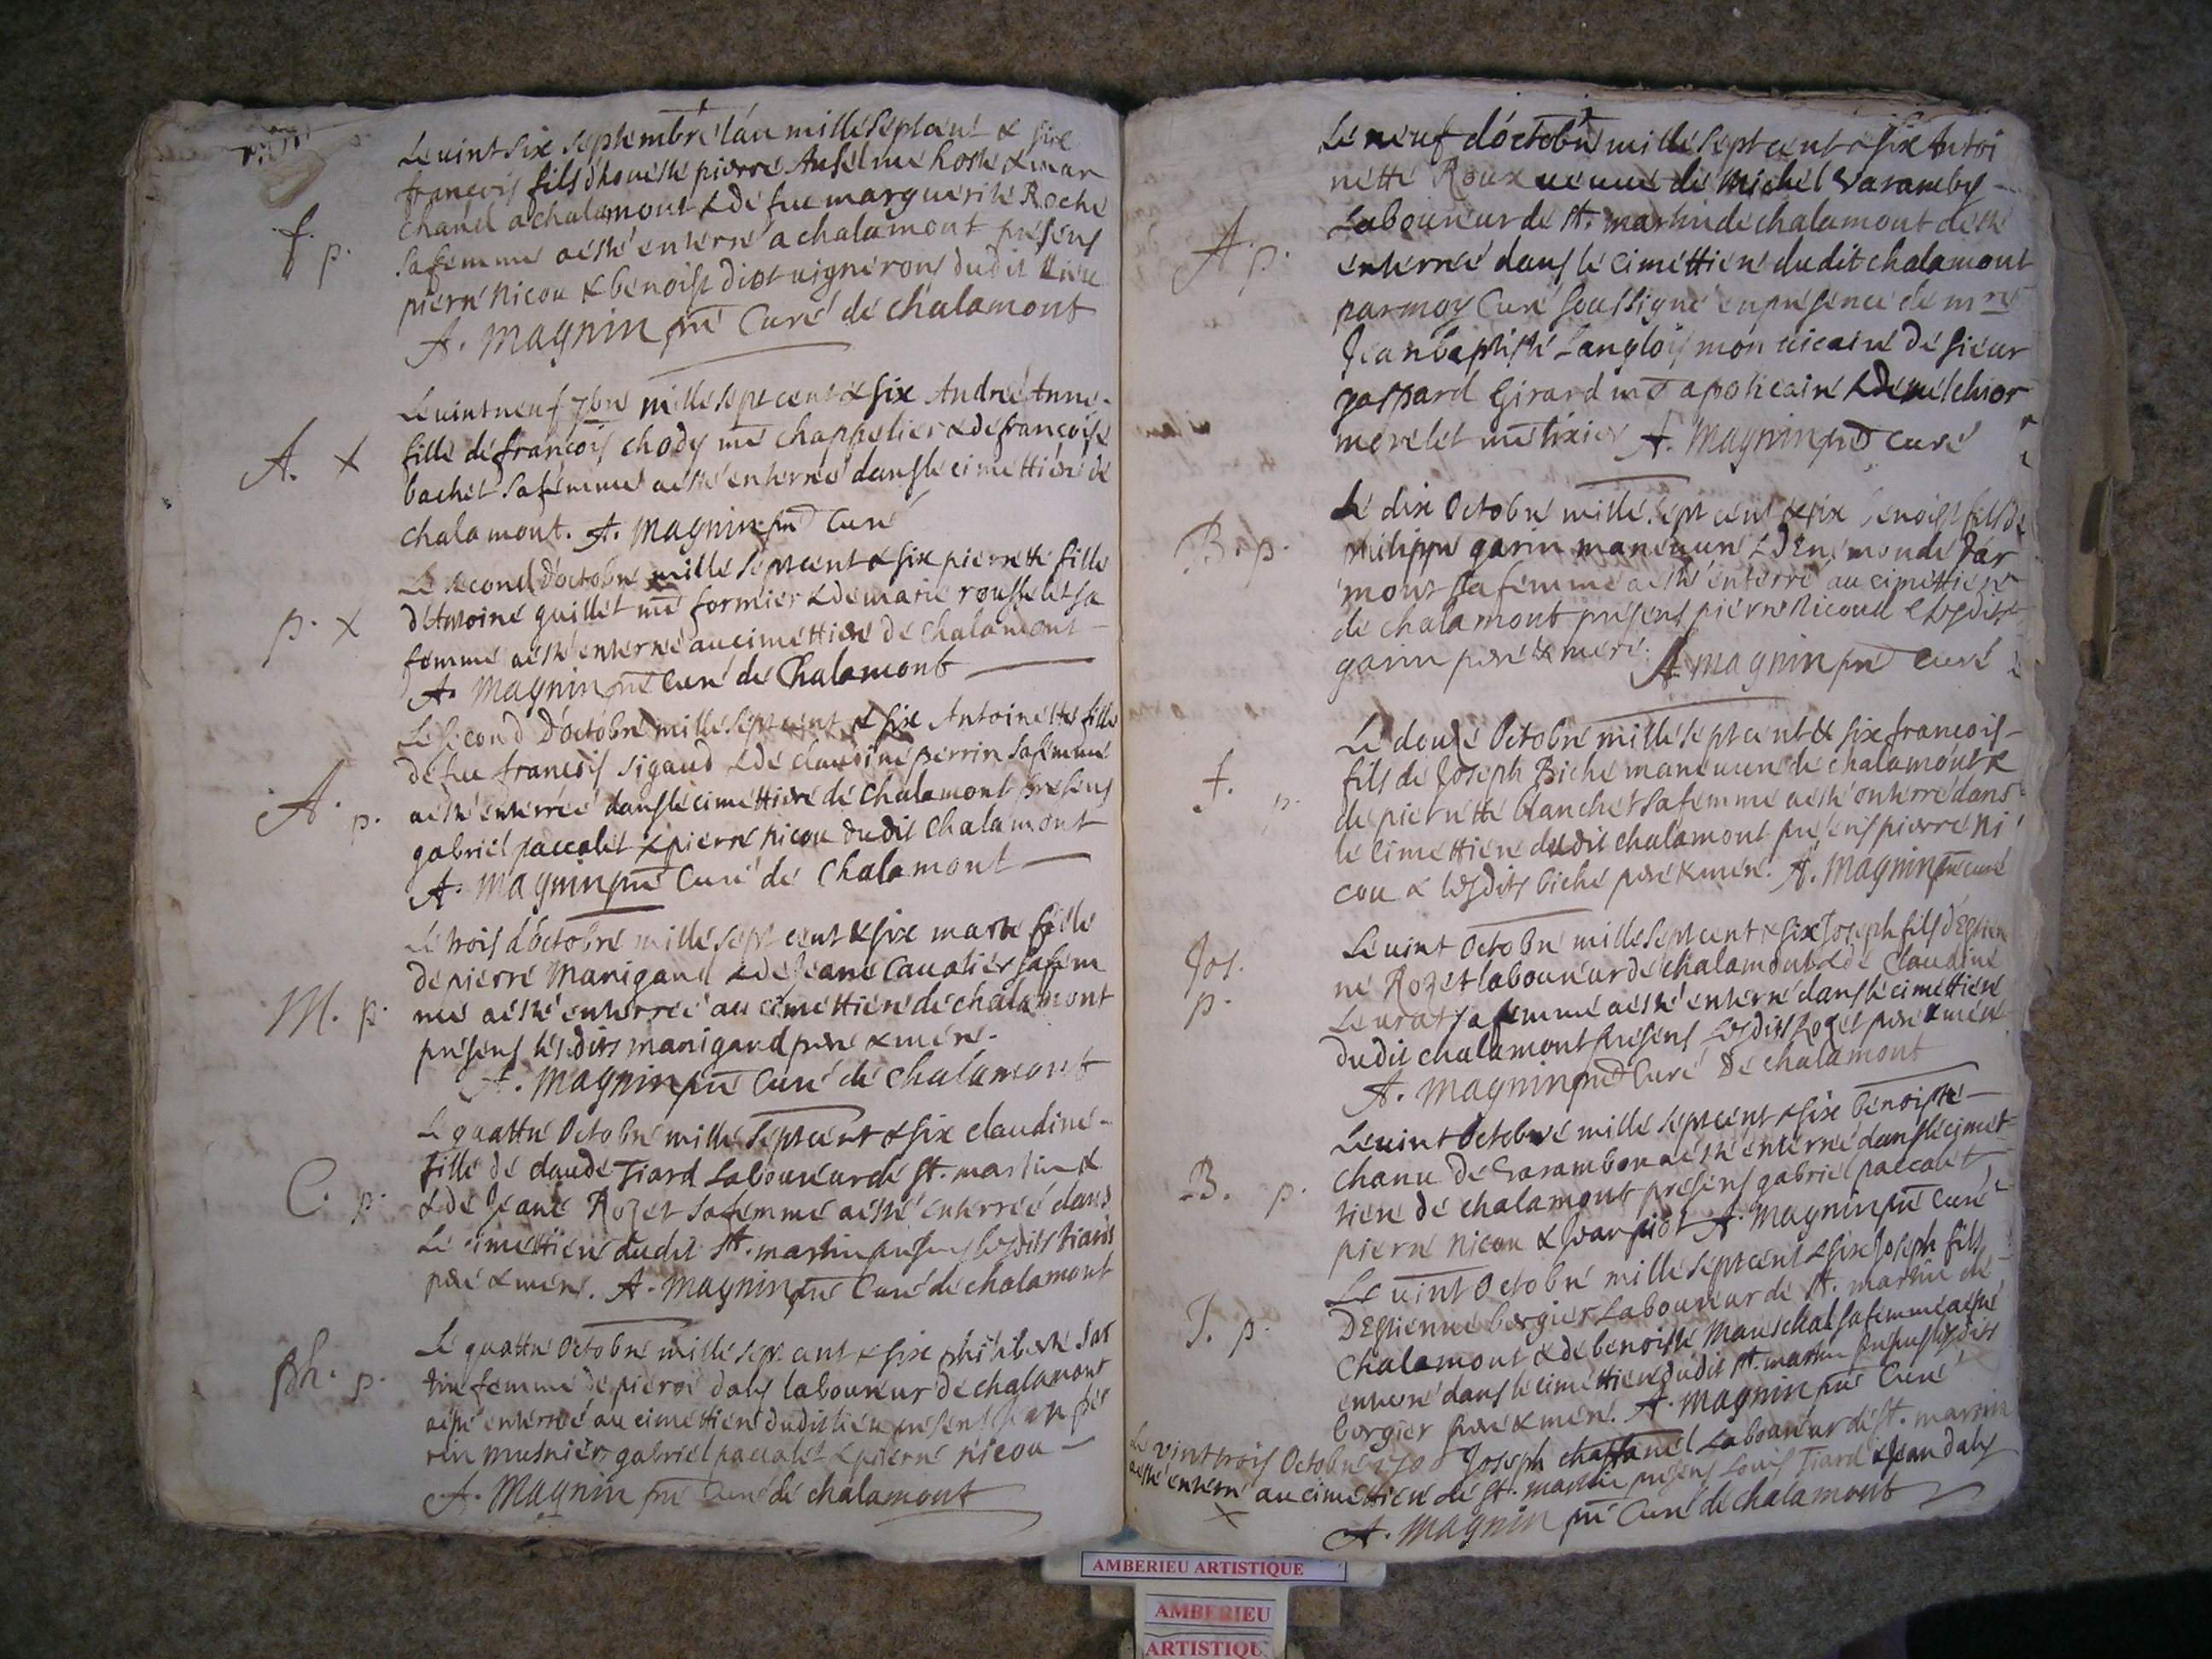 Le vint six septembre l'an mille sept cent & six
francois fils d'honeste pierre Anselme hoste & mar
chand a chalamont & de fue marguerite Roche
f. p.
sa femme a esté enterré a chalamont presens
pierre nicou & benoist diot vignerons dudit lieu
A. Magnin pre Curé de chalamont
Le vint neuf 7bre mille sept cent & six Andreé Anne
A. X
fille de francois chody me chappelier & de francoise
bachet sa femme a esté enterreé dans le cimettiere de
chalamont. A. Magnin pre Curé
Le second d'octobre mille sept cent & six pierrette fille
d'Antoine guillet me formier & de marie rousselet sa
p. X
femme a esté enterreé au cimettiere de chalamont
A. Magnin pre Curé de Chalamont
Le second d'octobre mille sept cent & six Antoinette fille
de feu francois sigaud & de claudine perrin sa femme
A. p.
a esté enterreé dans le cimettiere de chalamont presens
gabriel paccalet & pierre nicou dudit chalamont
A. Magnin pre Curé de Chalamont
Le trois d'octobre mille sept cent & six marie fille
de pierre Manigand & de Jeane Cavalier sa fem
M. p.
me a esté enterreé au cimettiere de chalamont
presens lesdits manigand pere & mere.
A. Magnin pre Curé de chalamont
Le quattre Octobre mille sept cent & six claudine
fille de claude Tiard Laboureur de St. martin &
C. p.
& de Jeane Rozet sa femme a esté enterreé dans
Le cimettiere dudit St. martin presens lesdits tiard
pere & mere. A. Magnin pre Curé de chalamont
Le quattre Octobre mille sept cent & six philiberte
Ph. p.
femme de pierre daly laboureur de chalamont
a esté enterreé au cimettiere dudit lieu presens jean per
rin musnier gabriel paccalet & pierre nicou
A. Magnin pre Curé de chalamont
Le neuf d'octobre mille sept cent & six Antoi
nette Roux veuve de Michel Varamby
A. p.
Laboureur de St. martin de chalamont a esté
enterreé dans le cimettiere dudit chalamont
par moy Curé soussigné en presence de mre
Jean baptiste Langlois mon vicaire de sieur
gaspard Girard me apoticaire & de melchior
morelet me tixier A. Magnin pre Curé
Le dix Octobre mille sept cent & six benoist fils de
B. p.
philippe garin maneuvre & d'Enemonde Jar
mont sa femme a esté enterré au cimettiere
de chalamont presens pierre nicoud &
garin pere & mere. A. Magnin pre Curé
Le douze Octobre mille sept cent & six francois
fils de Joseph Biche maneuvre de chalamont &
f. p.
de pierrette blanchet sa femme a esté enterré dans
le cimettiere dudit chalamont presens pierre ni
cou & lesdits biche pere & mere. A. Magnin pre curé
Le vint Octobre mille sept cent & six Joseph fils d'Estien
Jos.
ne Rozet laboureur de chalamont & de Claudine
p.
Levrat sa femme a esté enterré dans le cimettiere
dudit chalamont presens lesdits Rozet pere & mere
A. Magnin pre Curé de chalamont
Le vint Octobre mille sept cent & six benoiste
chanu de Varambon a esté enterreé dans le cimet
B. p.
tiere de chalamont presens gabriel paccalet
pierre nicou & Jean piot A. Magnin pre Curé
Le vint Octobre mille sept cent & six Joseph fils
J. p.
D'Estienne bergier Laboureur de St. martin de
Chalamont & de benoiste Mareschal sa femme a esté
enterré dans le cimettiere dudit St. martin presens lesdits
bergier pere & mere. A. Magnin pre Curé
Le vint trois Octobre 1706 Joseph chassanel Laboureur de St. martin
a esté enterré au cimettiere de St. martin presens Louis Tiard & Jean daly
X
A. Magnin pre Curé de chalamont
AMBERIEU ARTISTIQUE
AMBERIEU
ARTISTIQU